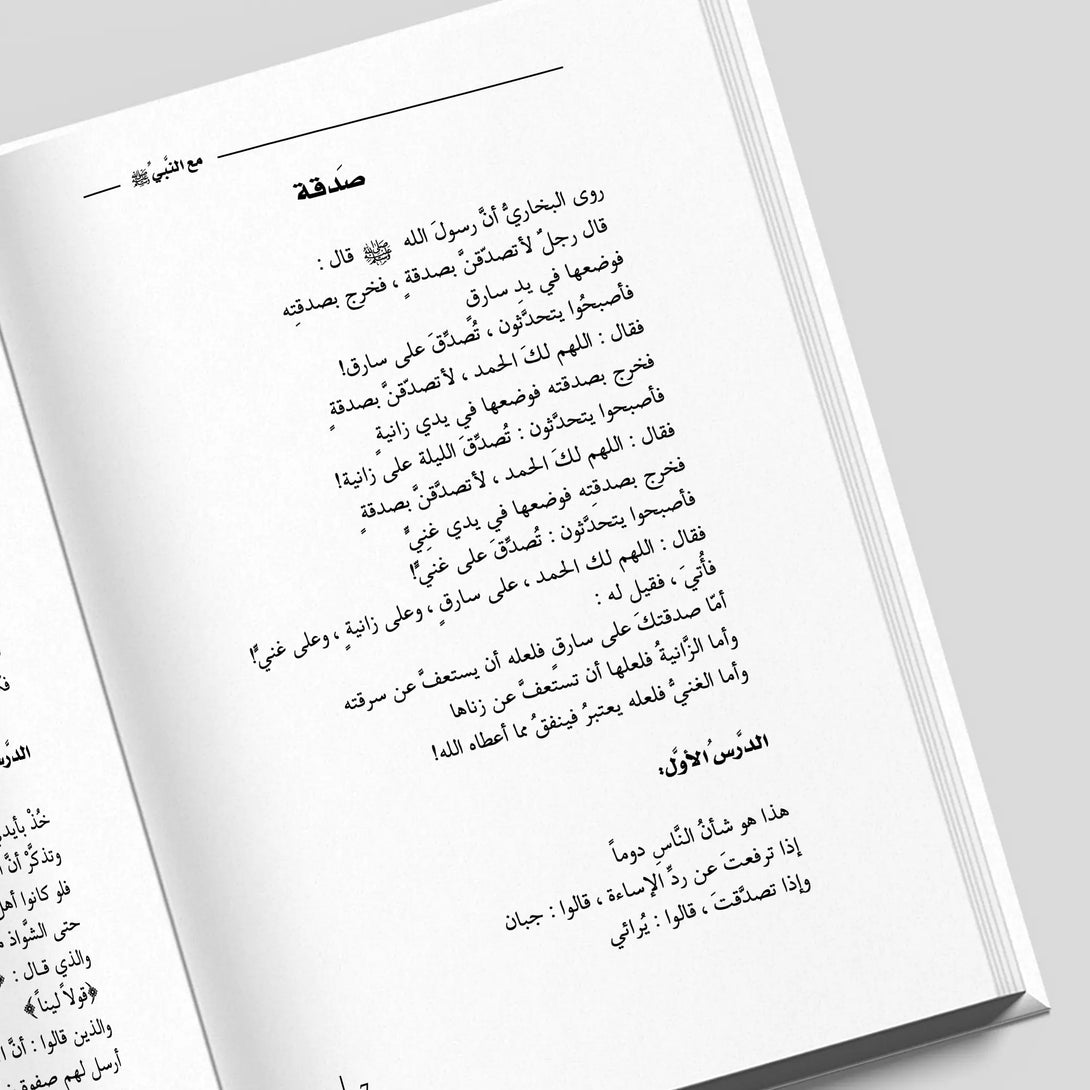 مع النَّبيِّ ﷺ
صَدقة
روى البخاريُّ أنَّ رسولَ الله ﷺ قال :
قال رجلٌ لأتصدّقنَّ بصدقةٍ ، فخرج بصدقتِه
فوضعها في يدِ سارقٍ
فأصبحُوا يتحدَّثون ، تُصدِّقَ على سارق!
فقال : اللهم لكَ الحمد ، لأتصدّقنَّ بصدقةٍ
فخرج بصدقته فوضعها في يدي زانيةٍ
فأصبحوا يتحدَّثون : تُصدِّقَ الليلة على زانية!
فقال : اللهم لكَ الحمد ، لأتصدَّقنَّ بصدقةٍ
فخرج بصدقتِه فوضعها في يدي غنِيٍّ
فأصبحوا يتحدَّثون : تُصدِّقَ على غنيٍّ!
فقال : اللهم لك الحمد ، على سارقٍ ، وعلى زانيةٍ ، وعلى غنيٍّ!
فأُتيَ ، فقيل له :
أمّا صدقتكَ على سارقٍ فلعله أن يستعفَّ عن سرقته
وأما الزَّانيةُ فلعلها أن تستعفَّ عن زناها
وأما الغنيُّ فلعله يعتبرُ فينفقُ مما أعطاه الله!
الدَّرسُ الأوَّل:
هذا هو شأنُ النَّاسِ دوماً
إذا ترفعتَ عن ردِّ الإساءة ، قالوا : جبان
وإذا تصدَّقتَ ، قالوا : يُرائي
خُذْ
وتذكَّرْ أنَّ
فلو كانوا
حتى الشَّواذ
والذي قال :
﴿قولاً ليناً﴾
والذين قالوا : أنَّ
أرسل لهم صفوة